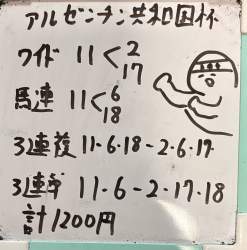 アルゼンチン共和国杯
ワイド 11く2
17
馬連 11く6
18
3連複 11-6-18-2-6-17
3連単 11-6-2-17-18
計1200円